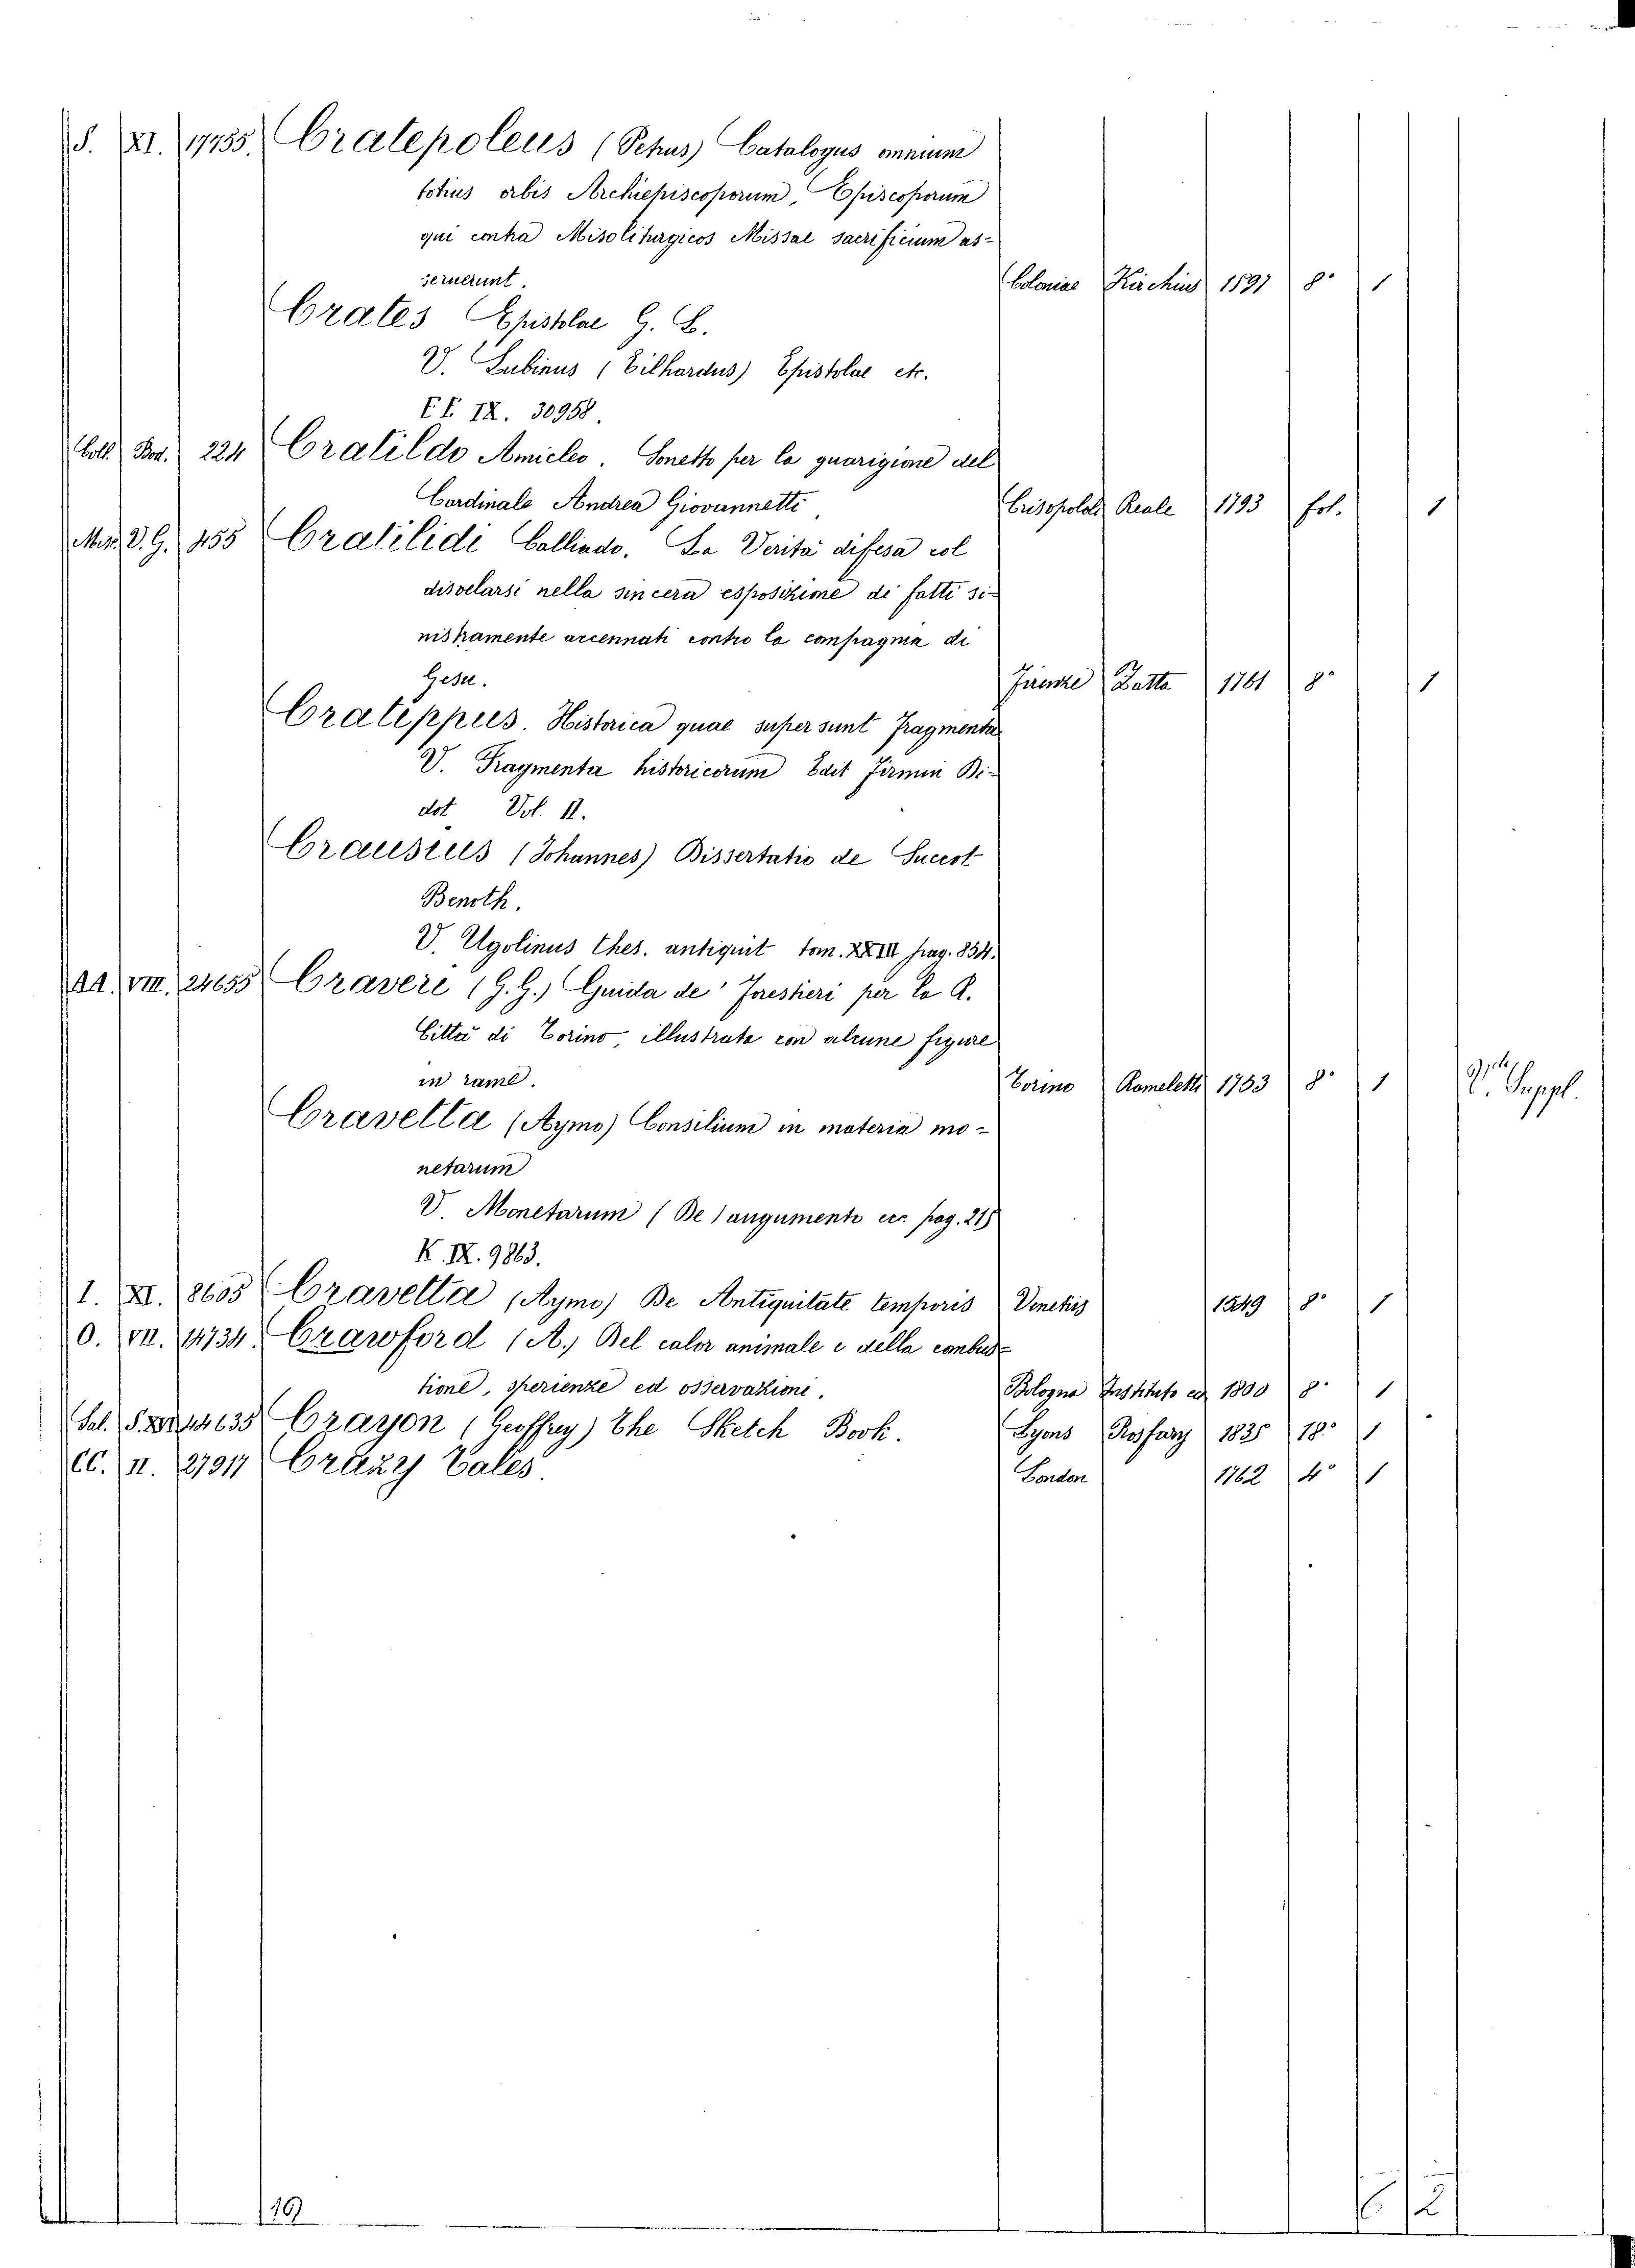 S. XI. 17755. Cratepoleus (Petrus) Catalogus omnium
totius orbis Archiepiscoporum, Episcoporum
qui contra Misoliturgicos Missal sacrificium as-
seruerunt. Coloniae Kirchius 1597 8° 1
Crates Epistolae G. L.
V. Lubinus (Eilhardus) Epistolae etc.
EE. IX. 30958.
Coll. Bod. 224 Cratildo Amicleo. Sonetto per la guarigione del
Cardinale Andrea Giovannetti Crisopoli Reale 1793 fol. 1
Mis. V. G. 455 Cratilidi Callindo. La Verità difesa col
disvelarsi nella sincera esposizione di fatti si-
nistramente accennati contro la compagnia di
Gesu. Firenze Zatta 1761 8° 1
Cratippus. Historica quae supersunt Fragmenta
V. Fragmenta historicorum Edit Firmin Di-
dot Vol. II.
Crausius (Johannes) Dissertatio de Succot
Benoth.
V. Ugolinus Thes. antiquit tom. XXIII pag. 834.
AA. VIII. 24655 Craveri (G. G.) Guida de' Forestieri per la R.
Città di Torino, illustrata con alcune figure
in rame. Torino Rameletti 1753 8° 1 V. Suppl.
Cravetta (Aymo) Consilium in materia mo-
netarum
V. Monetarum (De) augumento ecc pag. 215
K. IX. 9863.
I. XI. 8605 Cravetta (Aymo) De Antiquitate temporis Venetiis 1549 8° 1
O. VII. 14734. Crawford (A.) Del calor animale e della combus-
tione, sperienze ed osservazioni. Bologna Instituto ed 1800 8° 1
Sal. S. XVI 44635 Crayon (Geoffrey) The Sketch Book. Lyons Rosfary 1835 18° 1
CC. II. 27917 Crazy Tales. London 1762 4° 1
19 6 2